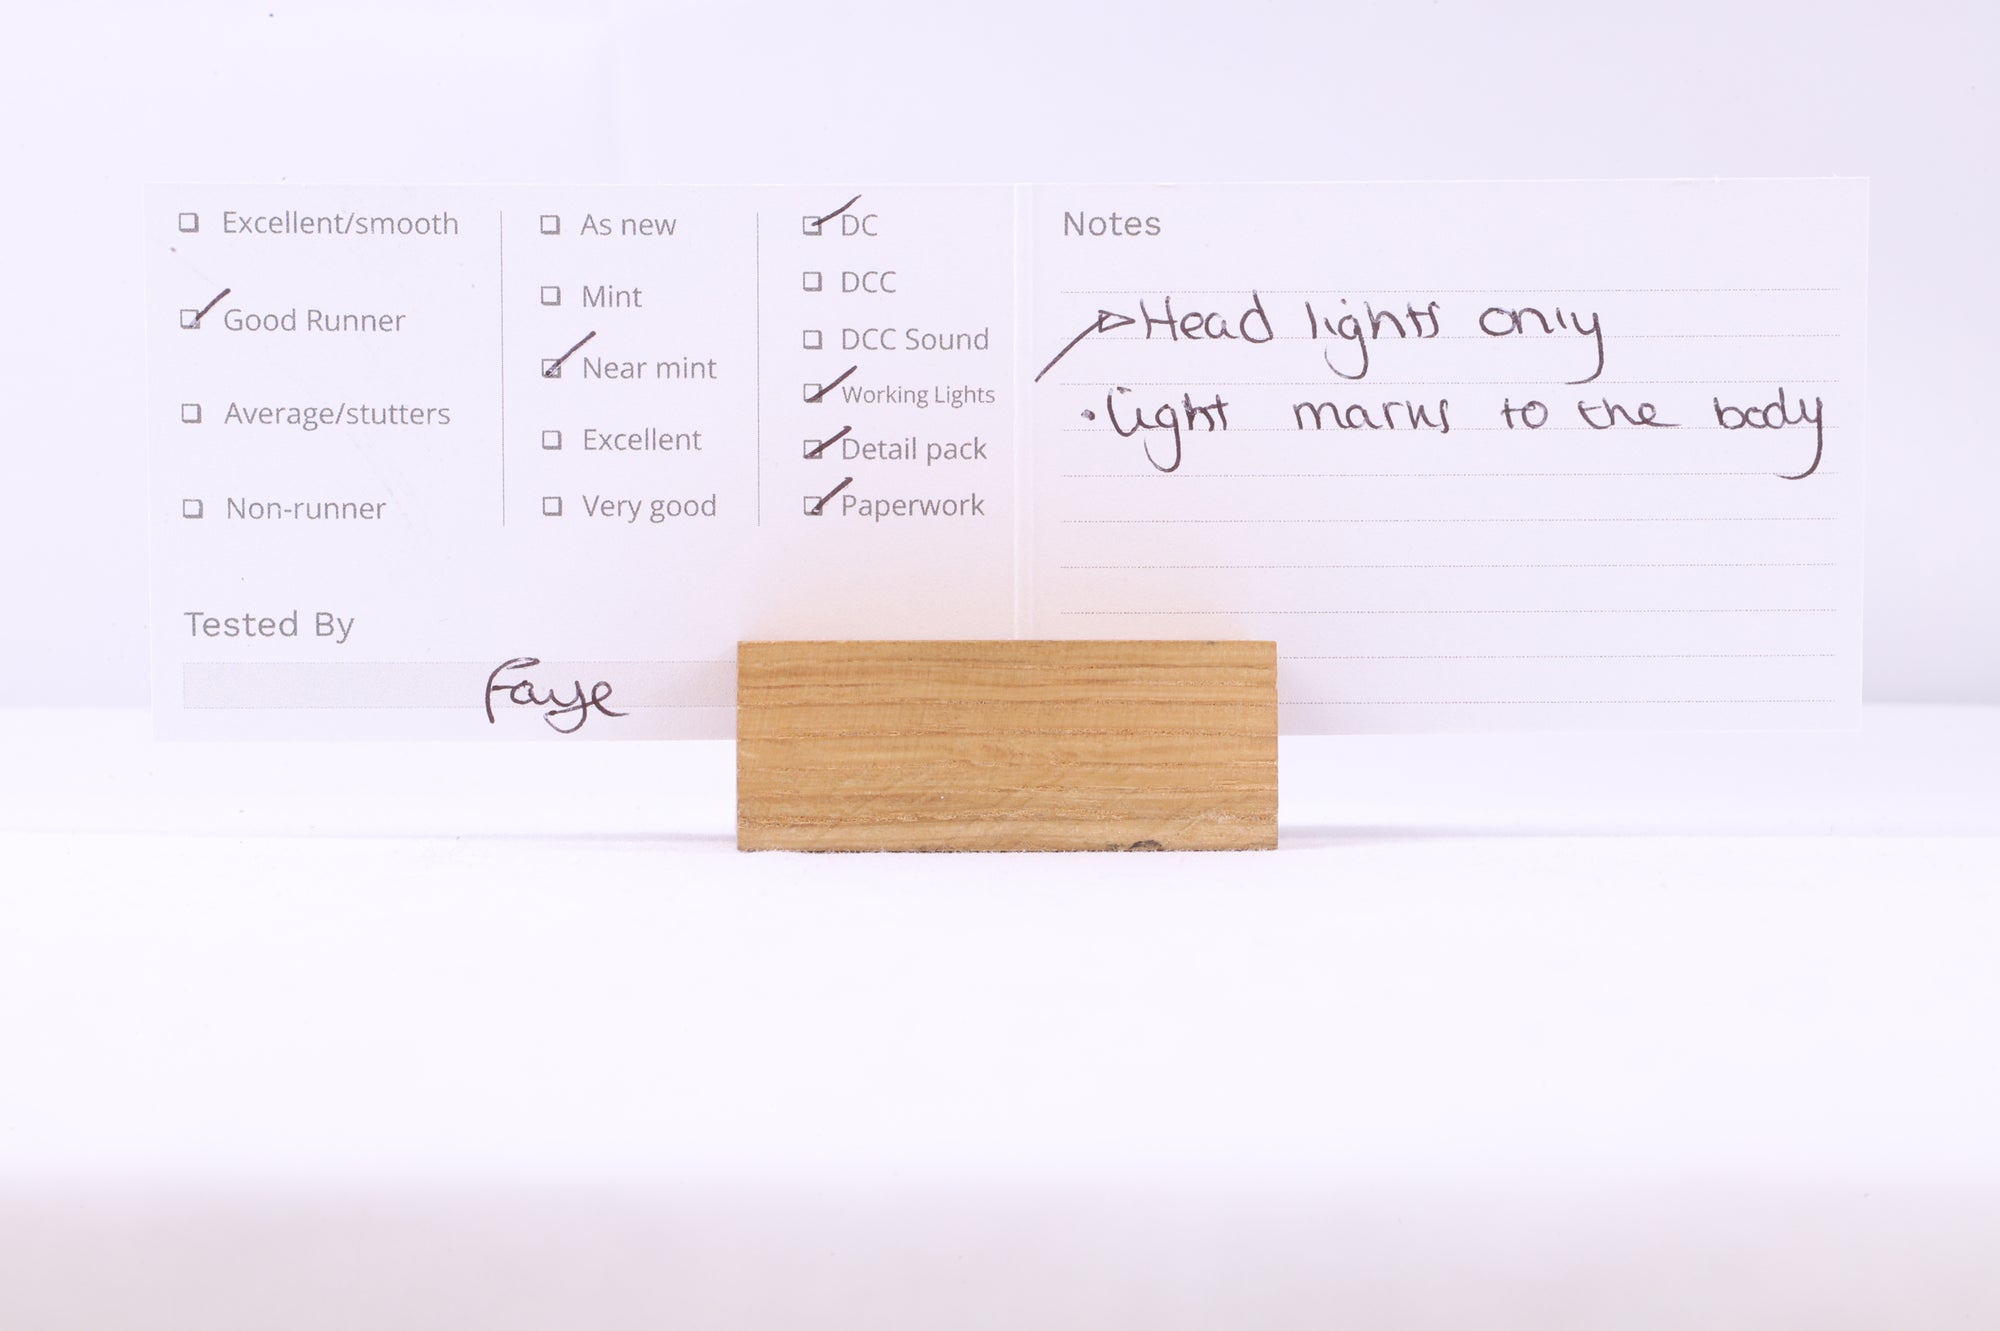 Excellent/smooth
Good Runner
Average/stutters
Non-runner
As new
Mint
Near mint
Excellent
Very good
DC
DCC
DCC Sound
Working Lights
Detail pack
Paperwork
Tested By
Faye
Notes
Head lights only
• light marks to the body